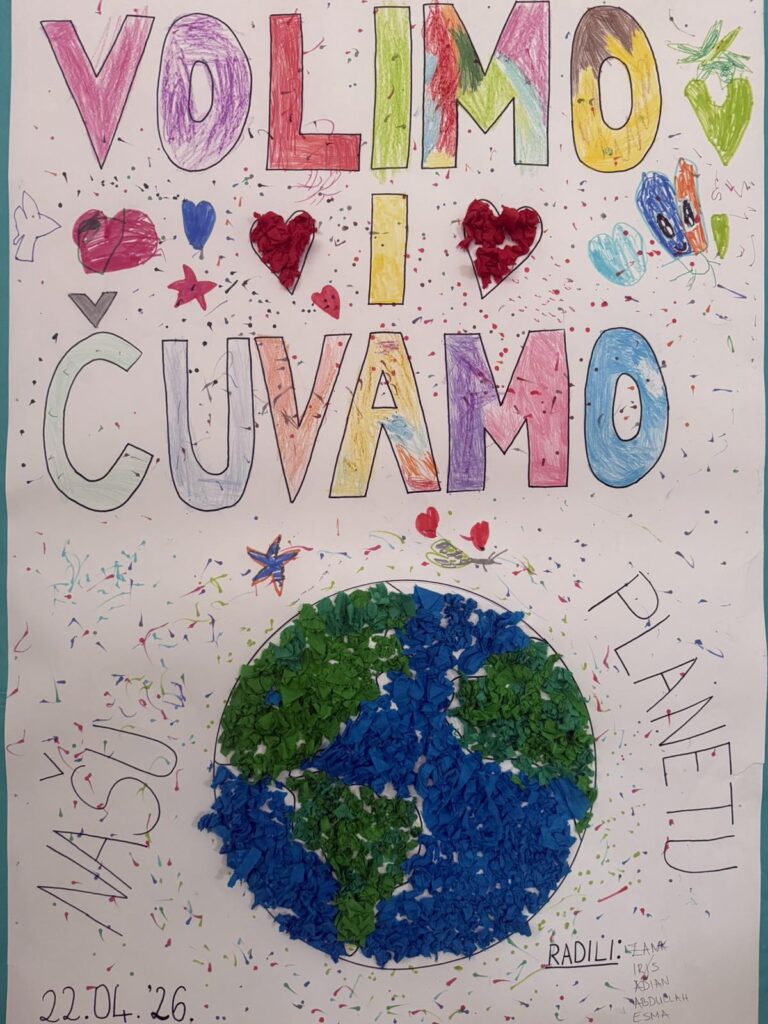 VOLIMO
I
ČUVAMO
NAŠU
PLANETU
RADILI:
ZANA
IRIS
ADIAN
ABDULLAH
ESMA
22.04.'26.